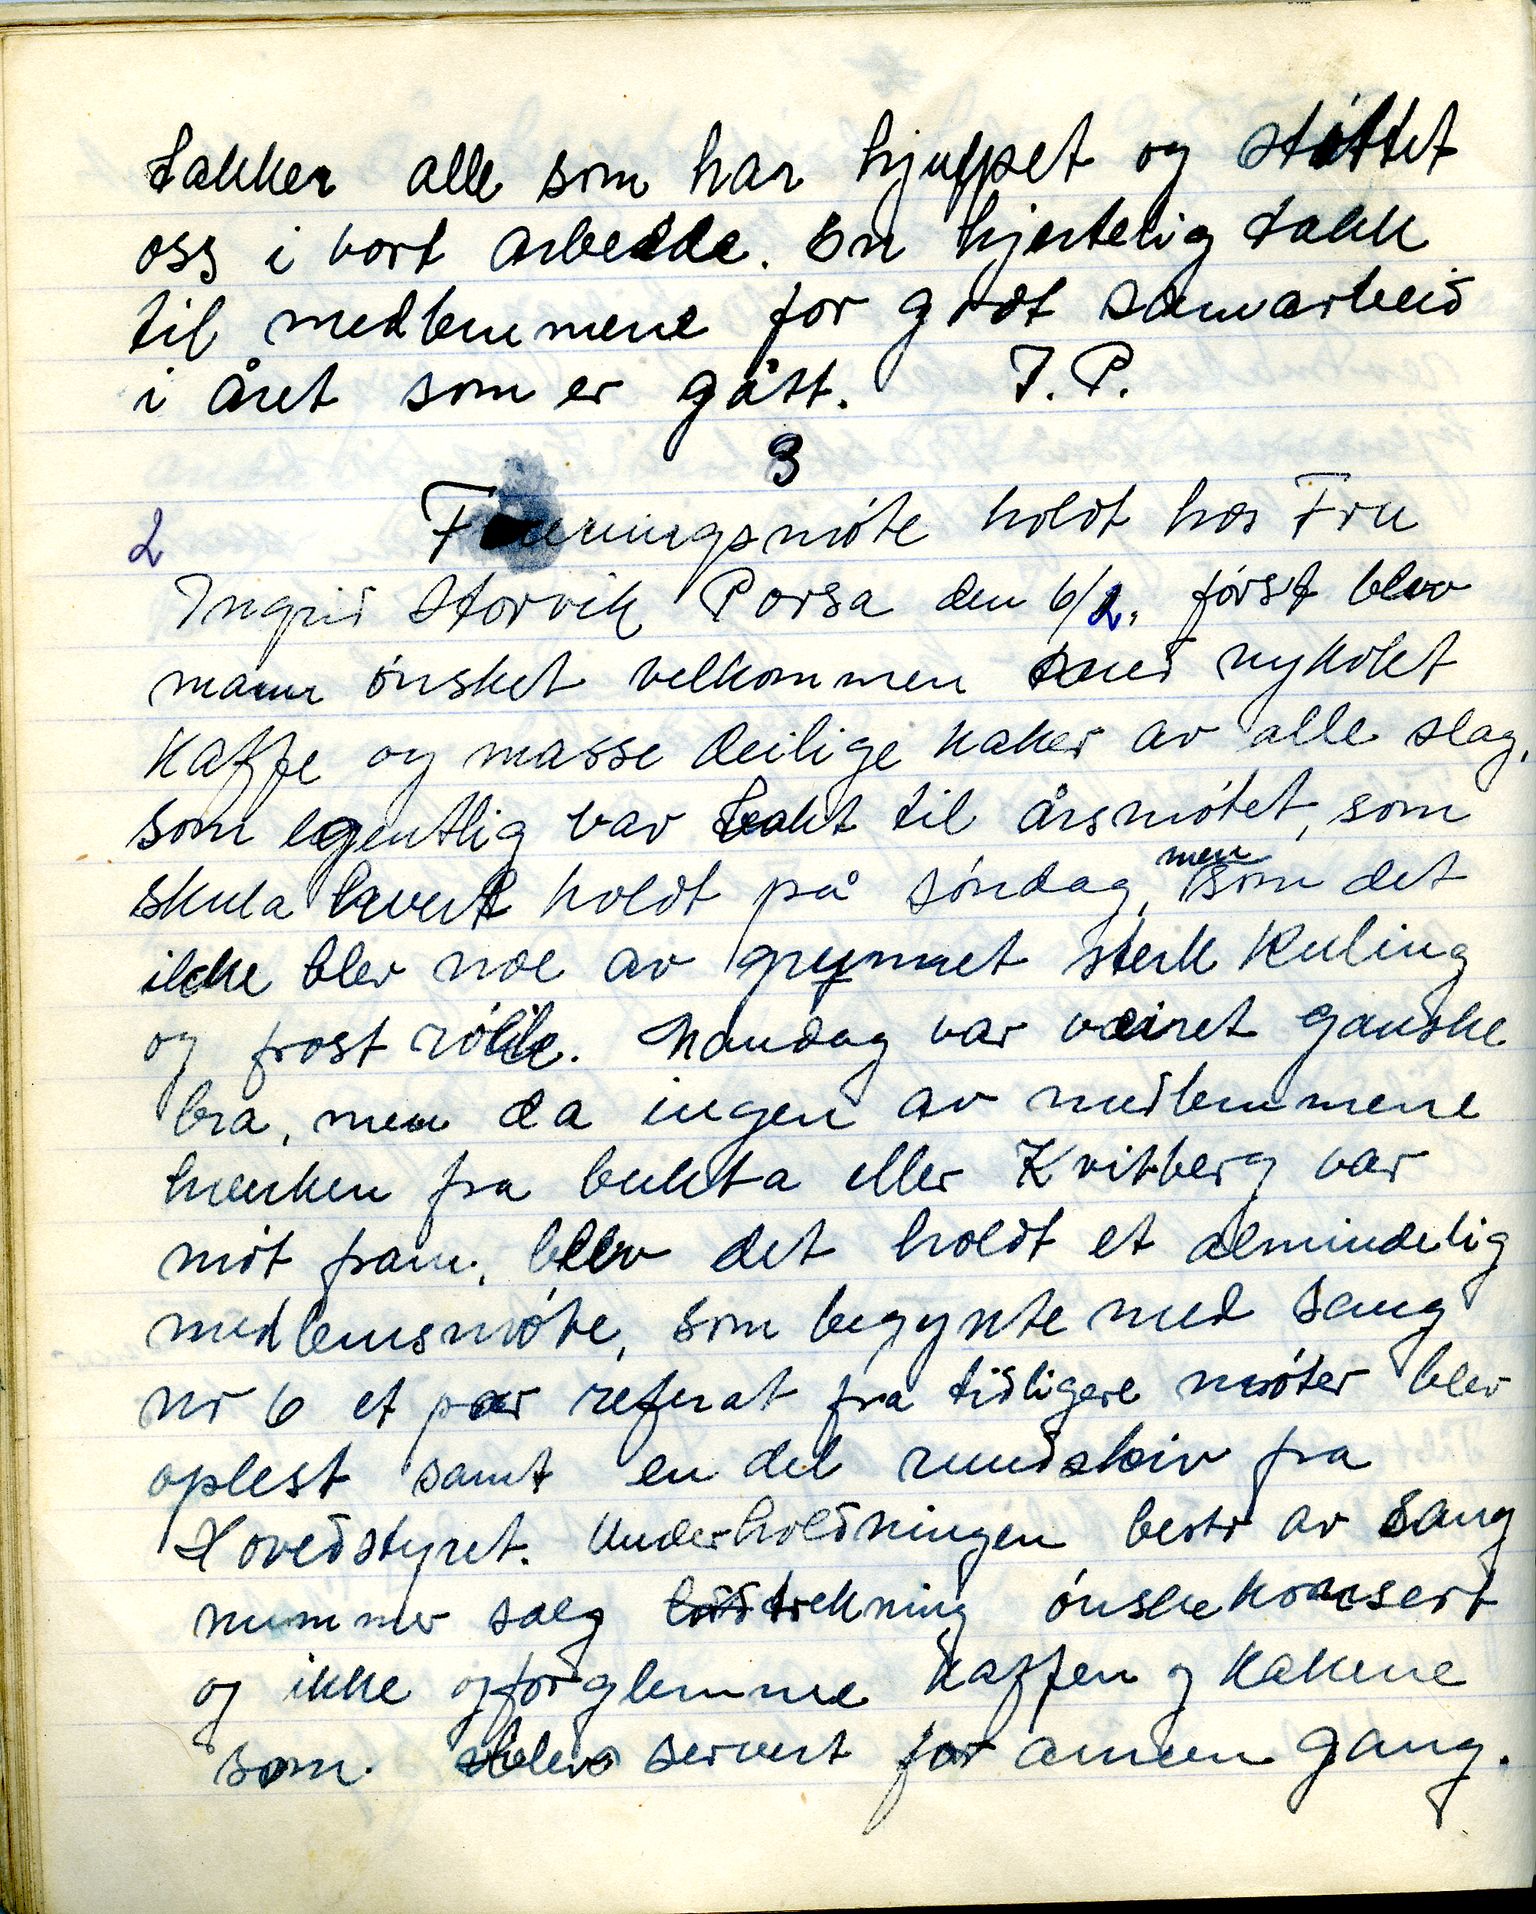 takker alle som har hjulpet og støttet
oss i vort arbeide. En hjertelig takk
til medlemmene for godt samarbeid
i året som er gått. I. P.
3
2 Foreningsmøte holdt hos Fru
Ingrid Storvik Porsa den 6/2. først blev
mann ønsket velkommen med nykokt
Kaffe og masse deilige kaker av alle slag,
som egentlig var bakt til årsmøtet, som
skula hvert holdt på søndag, men som det
ikke blev noe av grunnet sterk Kuling
og frost røkk. Mandag var været ganske
bra, men da ingen av medlemmene
hverken fra bukta eller Kvitberg var
møt fram, blev det holdt et almindelig
medlemsmøte, som begynte med sang
nr 6 et par referat fra tidligere møter blev
oplest samt en del rundskiv fra
Hovedstyret. Underholdningen besto av Sang
nummer salg trekning ønskekonsert
og ikke og forglemme Kaffen og Kakene
som blev servert for annen gang.